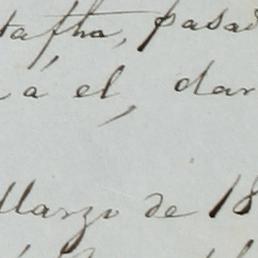 tafha, pasad
á el, dar
Marzo de 18